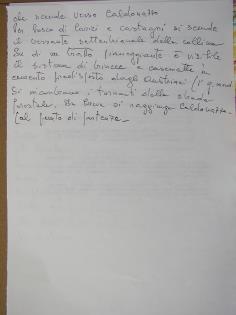 che scende verso Caldonazzo
Per bosco di larici e castagni si scende
il versante settentrionale della collina
Su di un tratto pianeggiante è visibile
il sistema di trincee e casematte in
cemento predisposto dagli Austriaci
Si incontrano i tornanti della strada
forestale. In breve si raggiunge Caldonazzo
(al punto di partenza